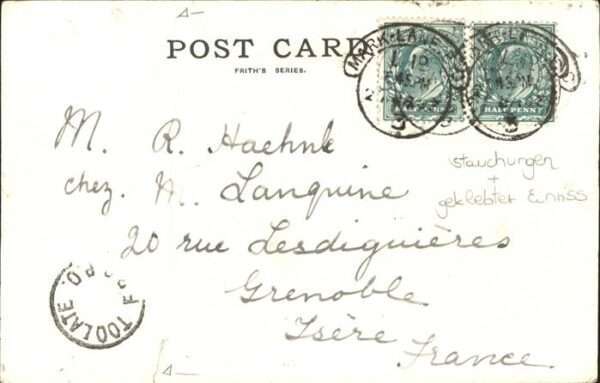 POST CARD
FRITH'S SERIES.
MARK-LANE
HALF PENNY
HALF PENNY
M. R. Haehnl
chez. M. Languine
20 rue Lesdiguières
Grenoble
Isère
France.
stauchungen
+
geklebter Einriss
TOO LATE